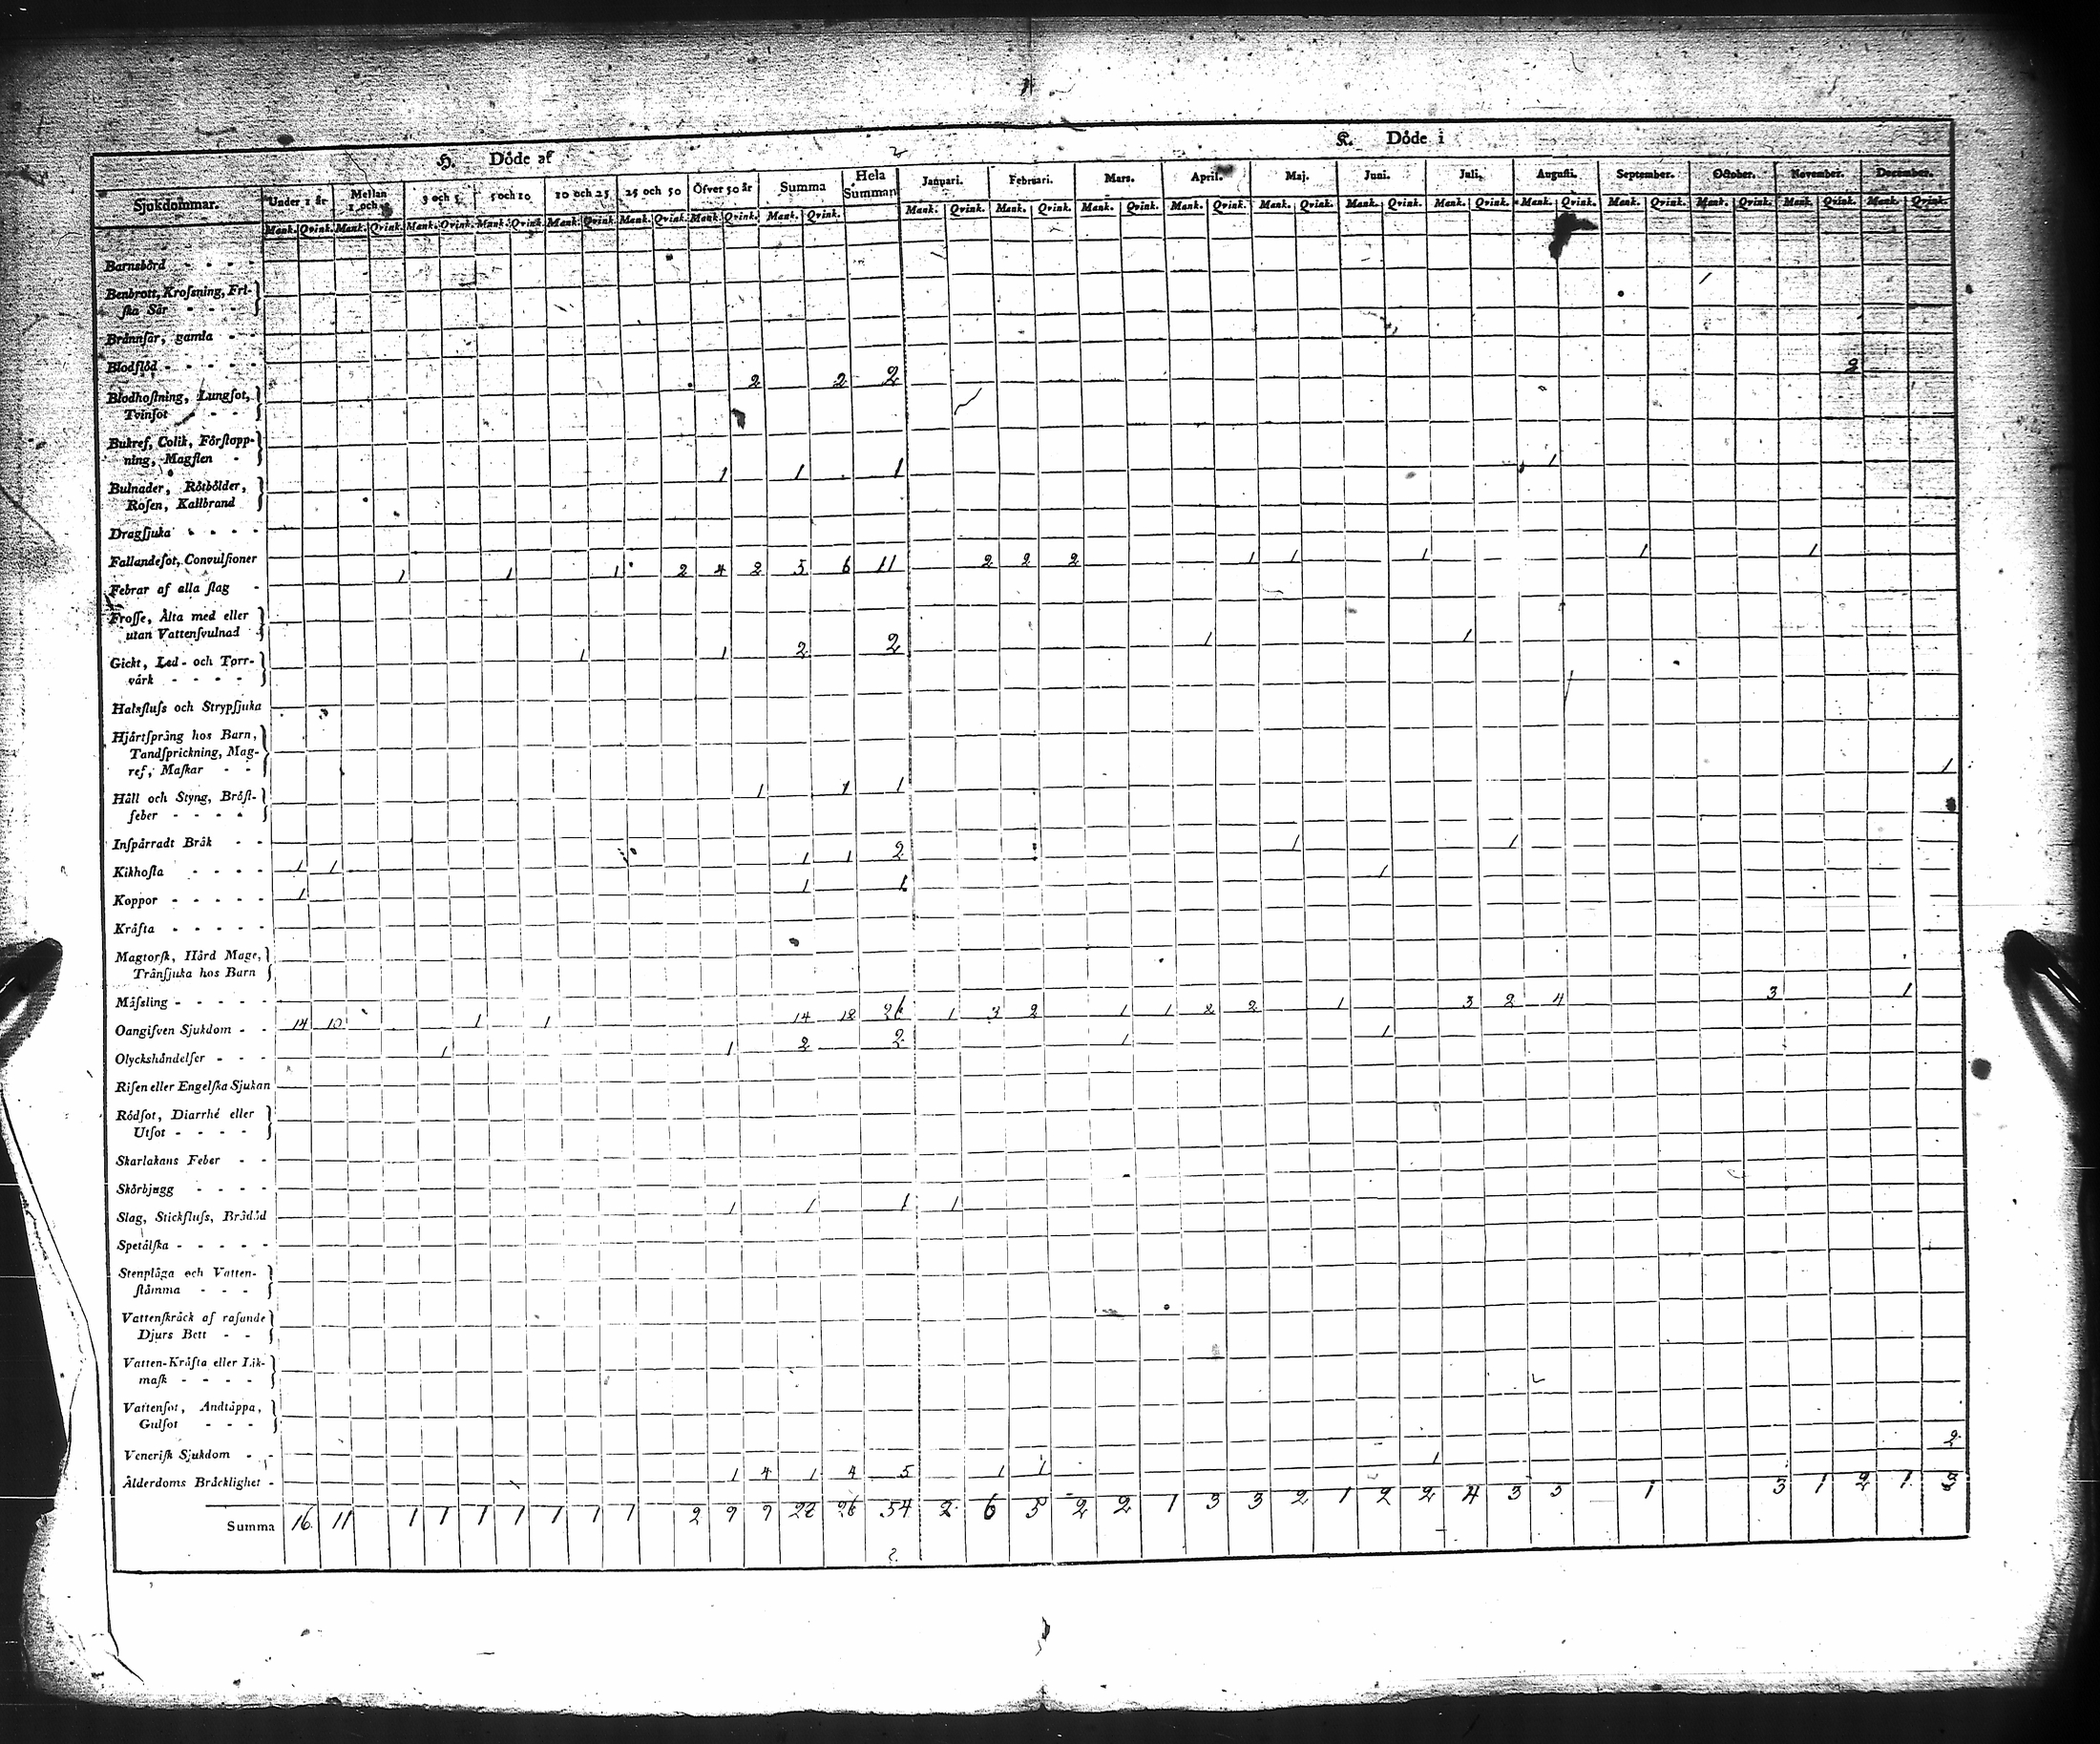 H. Döde af
K. Döde i
Sjukdommar. Under 1 år Mellan 1 och 3 och 5 5 och 10 10 och 25 25 och 50 Öfver 50 år Summa Hela Summan Januari. Februari. Mars. April. Maj. Juni. Juli. Augusti. September. October. November. December.
Mank. Qvink. Mank. Qvink. Mank. Qvink. Mank. Qvink. Mank. Qvink. Mank. Qvink. Mank. Qvink. Mank. Qvink. Mank. Qvink. Mank. Qvink. Mank. Qvink. Mank. Qvink. Mank. Qvink. Mank. Qvink. Mank. Qvink. Mank. Qvink. Mank. Qvink. Mank. Qvink. Mank. Qvink. Mank. Qvink.
Barnsbörd - - - -
Benbrott, Krosning, Fri-
ska Sår - - - -
Brännsår, gamla - -
Blodflöd - - - - - 2 2 2 2
Blodhostning, Lungsot,
Tvinsot - - -
Bukref, Colik, Förstopp-
ning, Magsten - 1 1 1 1
Bulnader, Rötbölder,
Rosen, Kallbrand
Dragsjuka - - - -
Fallandesot, Convulsioner
Febrar af alla slag - 1 1 1 2 4 2 5 6 11 2 2 2 1 1 1 1 1
Frosse, Älta med eller
utan Vattensvulnad -
Gickt, Led- och Torr- 1 1 2 2 1 1
värk - - - -
Halsfluss och Strypsjuka
Hjärtsprång hos Barn,
Tandsprickning, Mag-
ref, Maskar - -
Håll och Styng, Bröst- 1 1 1 1
feber - - - -
Inspärradt Bråk - -
Kikhosta - - - - 1 1 1 1 2 1 1
Koppor - - - - - 1 1 1 1
Kräfta - - - - -
Magtorsk, Hård Mage,
Tränsjuka hos Barn
Mässling - - - - -
Oangifven Sjukdom - - 14 10 1 1 14 12 26 1 3 2 1 1 2 2 1 3 2 4 3 1
Olyckshändelser - - - 1 1 2 2 1 1
Risen eller Engelska Sjukan
Rödsot, Diarrhé eller
Utsot - - - -
Skarlakans Feber - -
Skörbjugg - - - -
Slag, Stickfluss, Bråddöd 1 1 1 1
Spetälska - - - - -
Stenplåga och Vatten-
stämma - - -
Vattenskräck af rasande
Djurs Bett - -
Vatten-Kräfta eller Lik-
mask - - - -
Vattensot, Andtäppa,
Gulsot - - -
Venerisk Sjukdom - -
Ålderdoms Bräcklighet - 1 4 1 4 5 1 1 1 2
Summa 16 11 1 1 1 1 1 1 1 2 9 9 26 54 2 6 5 2 2 1 3 3 2 1 2 2 4 3 5 1 3 1 2 1 3